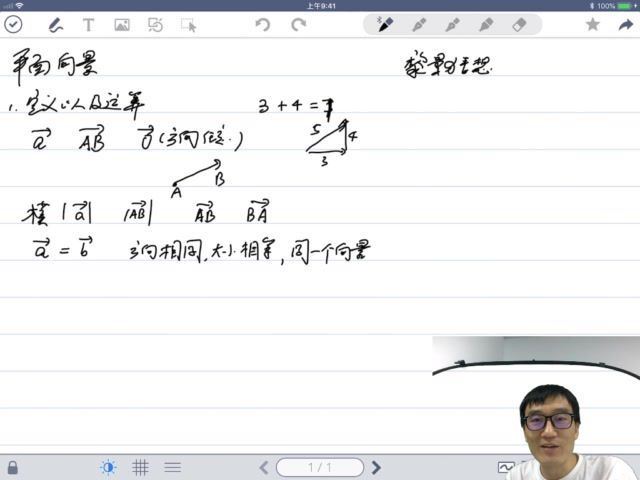 上午9:41
100%
平面向量
1. 定义以及运算
3 + 4 = 7
5
4
3
a⃗ AB⃗ 0⃗ (方向任意.)
A B
模 |a⃗| |AB⃗| AB⃗ BA⃗
a⃗ = b⃗ 方向相同,大小相等,同一个向量
1 / 1